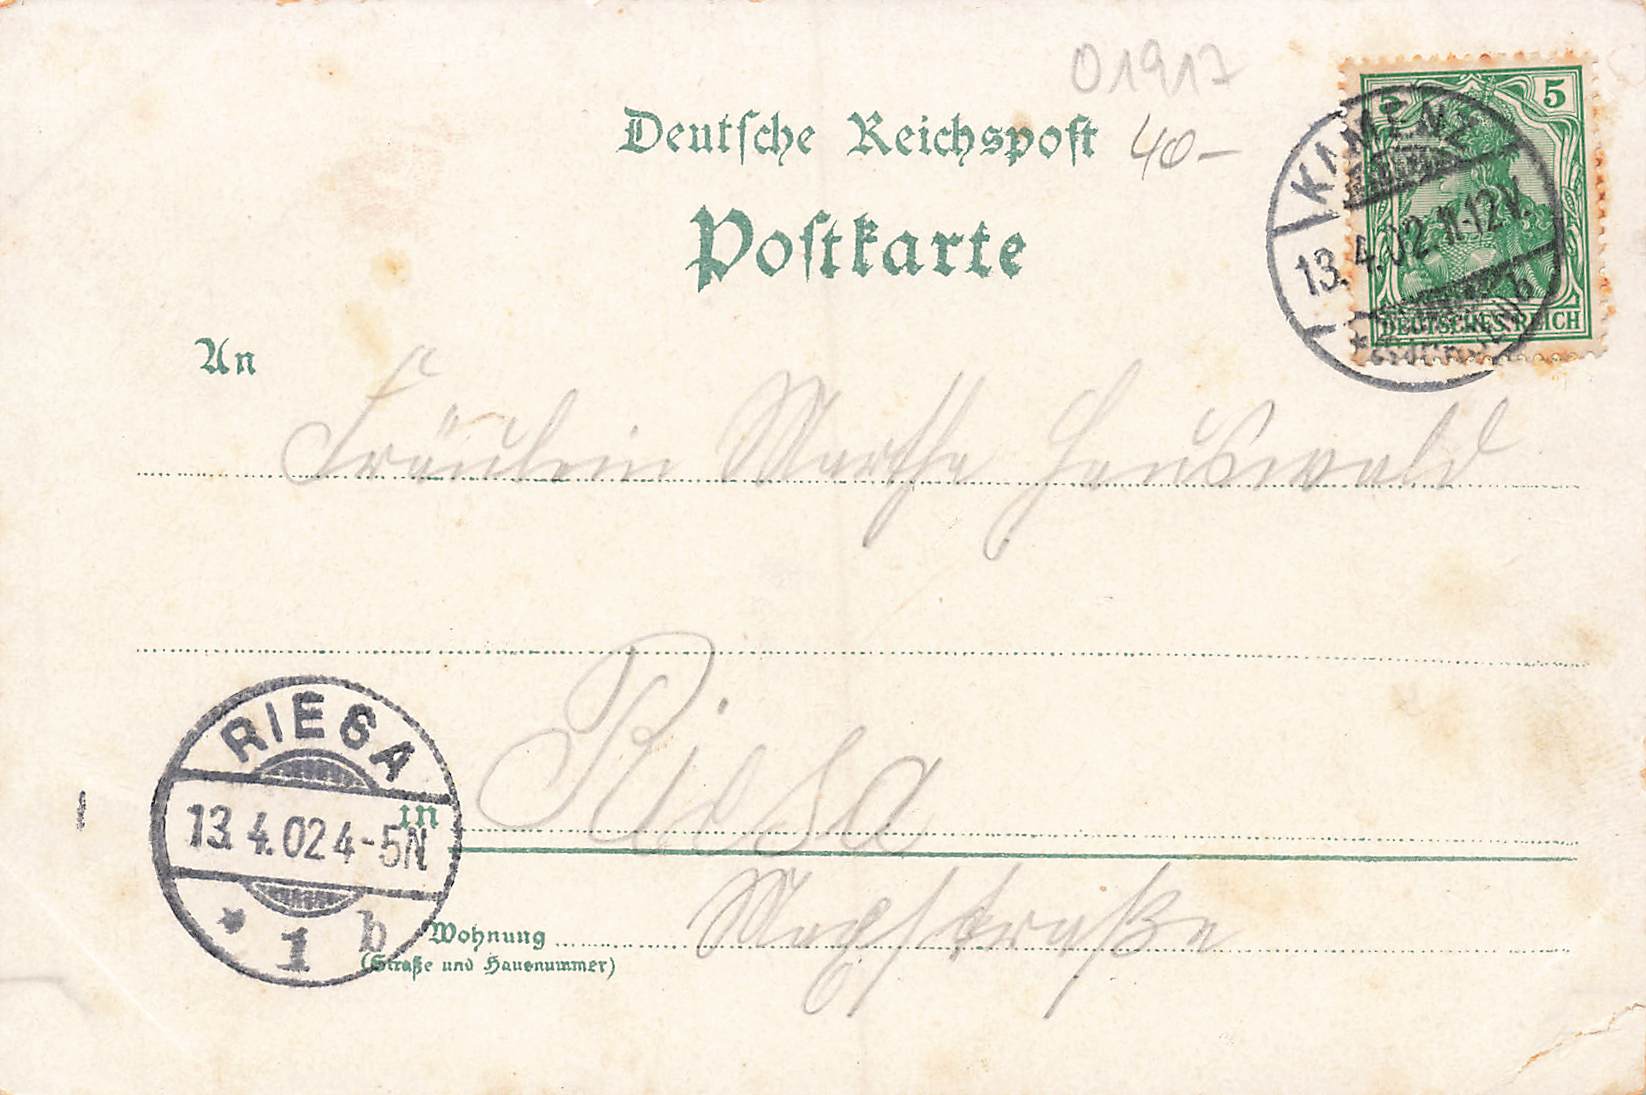 01917
Deutsche Reichspost 40-
Postkarte
5
KAMENZ
13.4.02.11-12V.
DEUTSCHES REICH
An
Fräulein Marthe Hauswald
RIESA
13.4.02 4-5N
* 1 b
in Riesa
Wohnung
(Straße und Hausnummer)